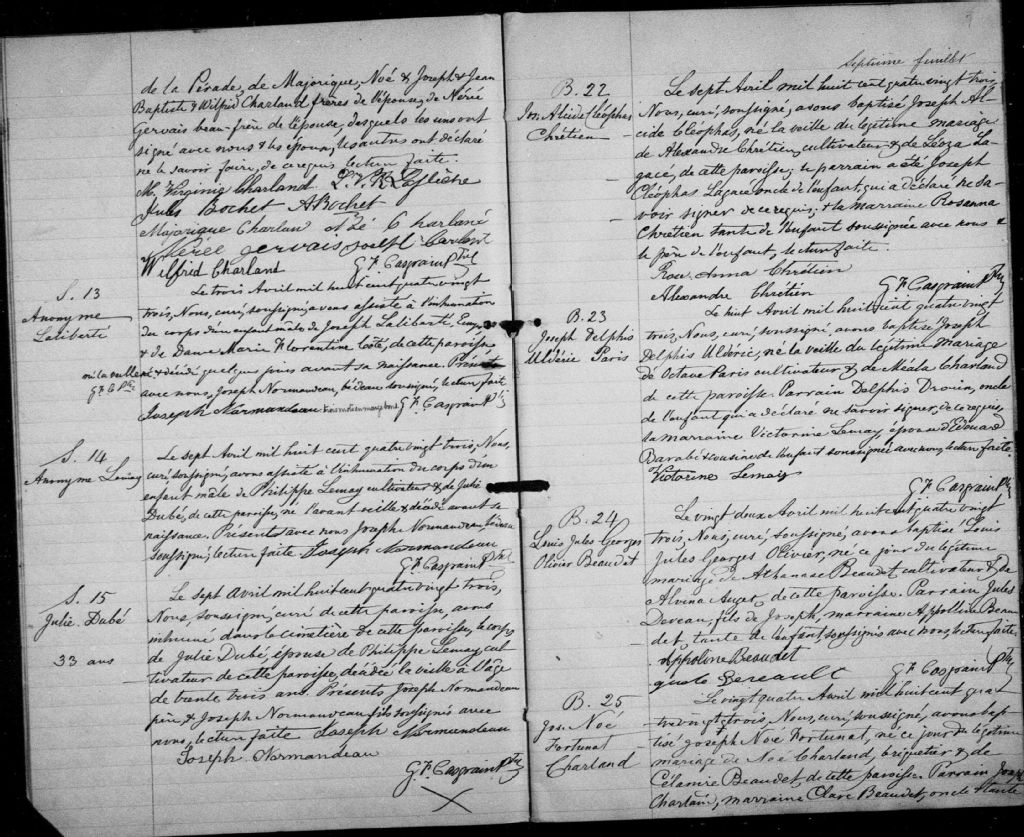 de la Pérade, de Majorique, Noé & Joseph & Jean
Baptiste & Wilfrid Charland frères de l'épouse, de Nérée
Gervais beau-frère de l'épouse, desquels les uns ont
signé avec nous & les époux, les autres ont déclaré
ne le savoir faire, de ce requis lecture faite.
M. Virginie Charland
Jules Bochet A Bochet
Majorique Charlan Noé Charland
Néré Gervais Joseph
Wilfrid Charland
G F. Casgrain Ptre
S. 13
Anonyme
Laliberté
Le trois Avril mil huit cent quatre vingt
trois, Nous, curé, soussigné, avons assisté à l'inhumation
du corps d'un enfant mâle de Joseph Laliberté,
& de Dame Marie Florentine Côté, de cette paroisse
né la veille
& décédé quelques jours avant sa naissance. Présents
G F. C Ptre
avec nous, Joseph Normandeau, bédeau soussigné, lecture faite
Joseph Normandeau trois mots en marge bons G F. Casgrain Ptre
S. 14
Anonyme Lemay
Le sept Avril mil huit cent quatre vingt trois, Nous,
curé, soussigné, avons assisté à l'inhumation du corps d'un
enfant mâle de Philippe Lemay cultivateur & de Julie
Dubé, de cette paroisse, né l'avant veille & décédé avant sa
naissance. Présents avec nous Joseph Normandeau, bédeau
soussigné; lecture faite Joseph Normandeau
G F. Casgrain Ptre
S. 15
Julie Dubé
33 ans
Le sept Avril mil huit cent quatre vingt trois,
Nous, soussigné, curé de cette paroisse, avons
inhumé dans le cimetière de cette paroisse, le corps
de Julie Dubé, épouse de Philippe Lemay cul
tivateur de cette paroisse, décédée la veille à l'âge
de trente trois ans. Présents Joseph Normandeau
père, & Joseph Normandeau fils soussignés avec
nous, lecture faite Joseph Normandeau
Joseph Normandeau
G F. Casgrain Ptre
Septième feuillet
B. 22
Jos. Alcide Cléophas
Chrétien
Le sept Avril mil huit cent quatre vingt trois
Nous, curé, soussigné, avons baptisé Joseph Al-
cide Cléophas, né la veille du légitime mariage
de Alexandre Chrétien, cultivateur & de Léoza La-
gacé, de cette paroisse; le parrain a été Joseph
Cléophas Lagacé oncle de l'enfant, qui a déclaré ne sa-
voir signer de ce requis; & la marraine Rosanna
Chrétien tante de l'enfant soussignée avec nous &
le père de l'enfant, lecture faite.
Rose Anna Chrétien
Alexandre Chrétien
G F. Casgrain Ptre
B. 23
Joseph Delphis
Uldéric Paris
Le huit Avril mil huit cent quatre vingt
trois, Nous, curé, soussigné avons baptisé Joseph
Delphis Uldéric, né la veille du légitime mariage
de Octave Paris cultivateur & de Méala Charland
de cette paroisse. Parrain Delphis Drouin, oncle
de l'enfant qui a déclaré ne savoir signer, de ce requis,
la marraine Victorine Lemay, épouse d'Edouard
Barabé & cousine de l'enfant soussignée avec nous, lecture faite.
Victorine Lemay
G F. Casgrain Ptre
B. 24
Louis Jules Georges
Olivier Beaudet
Le vingt deux Avril mil huit cent quatre vingt
trois, Nous, curé, soussigné, avons baptisé Louis
Jules Georges Olivier, né ce jour du légitime
mariage de Athanase Beaudet cultivateur & de
Alvina Auger, de cette paroisse. Parrain Jules
fils de Joseph, marraine Appolline Beau
det, tante de l'enfant soussignés avec nous, lecture faite.
Appoline Beaudet
G F. Casgrain Ptre
B. 25
Jos. Noé
Fortunat
Charland
Le vingt quatre Avril mil huit cent quat
tre vingt & trois, Nous, curé, soussigné, avons bap-
tisé Joseph Noé Fortunat, né ce jour du légitime
mariage de Noé Charland, briquetier & de
Célamire Beaudet, de cette paroisse. Parrain Joseph
Charland, marraine Clare Beaudet, oncle & tante